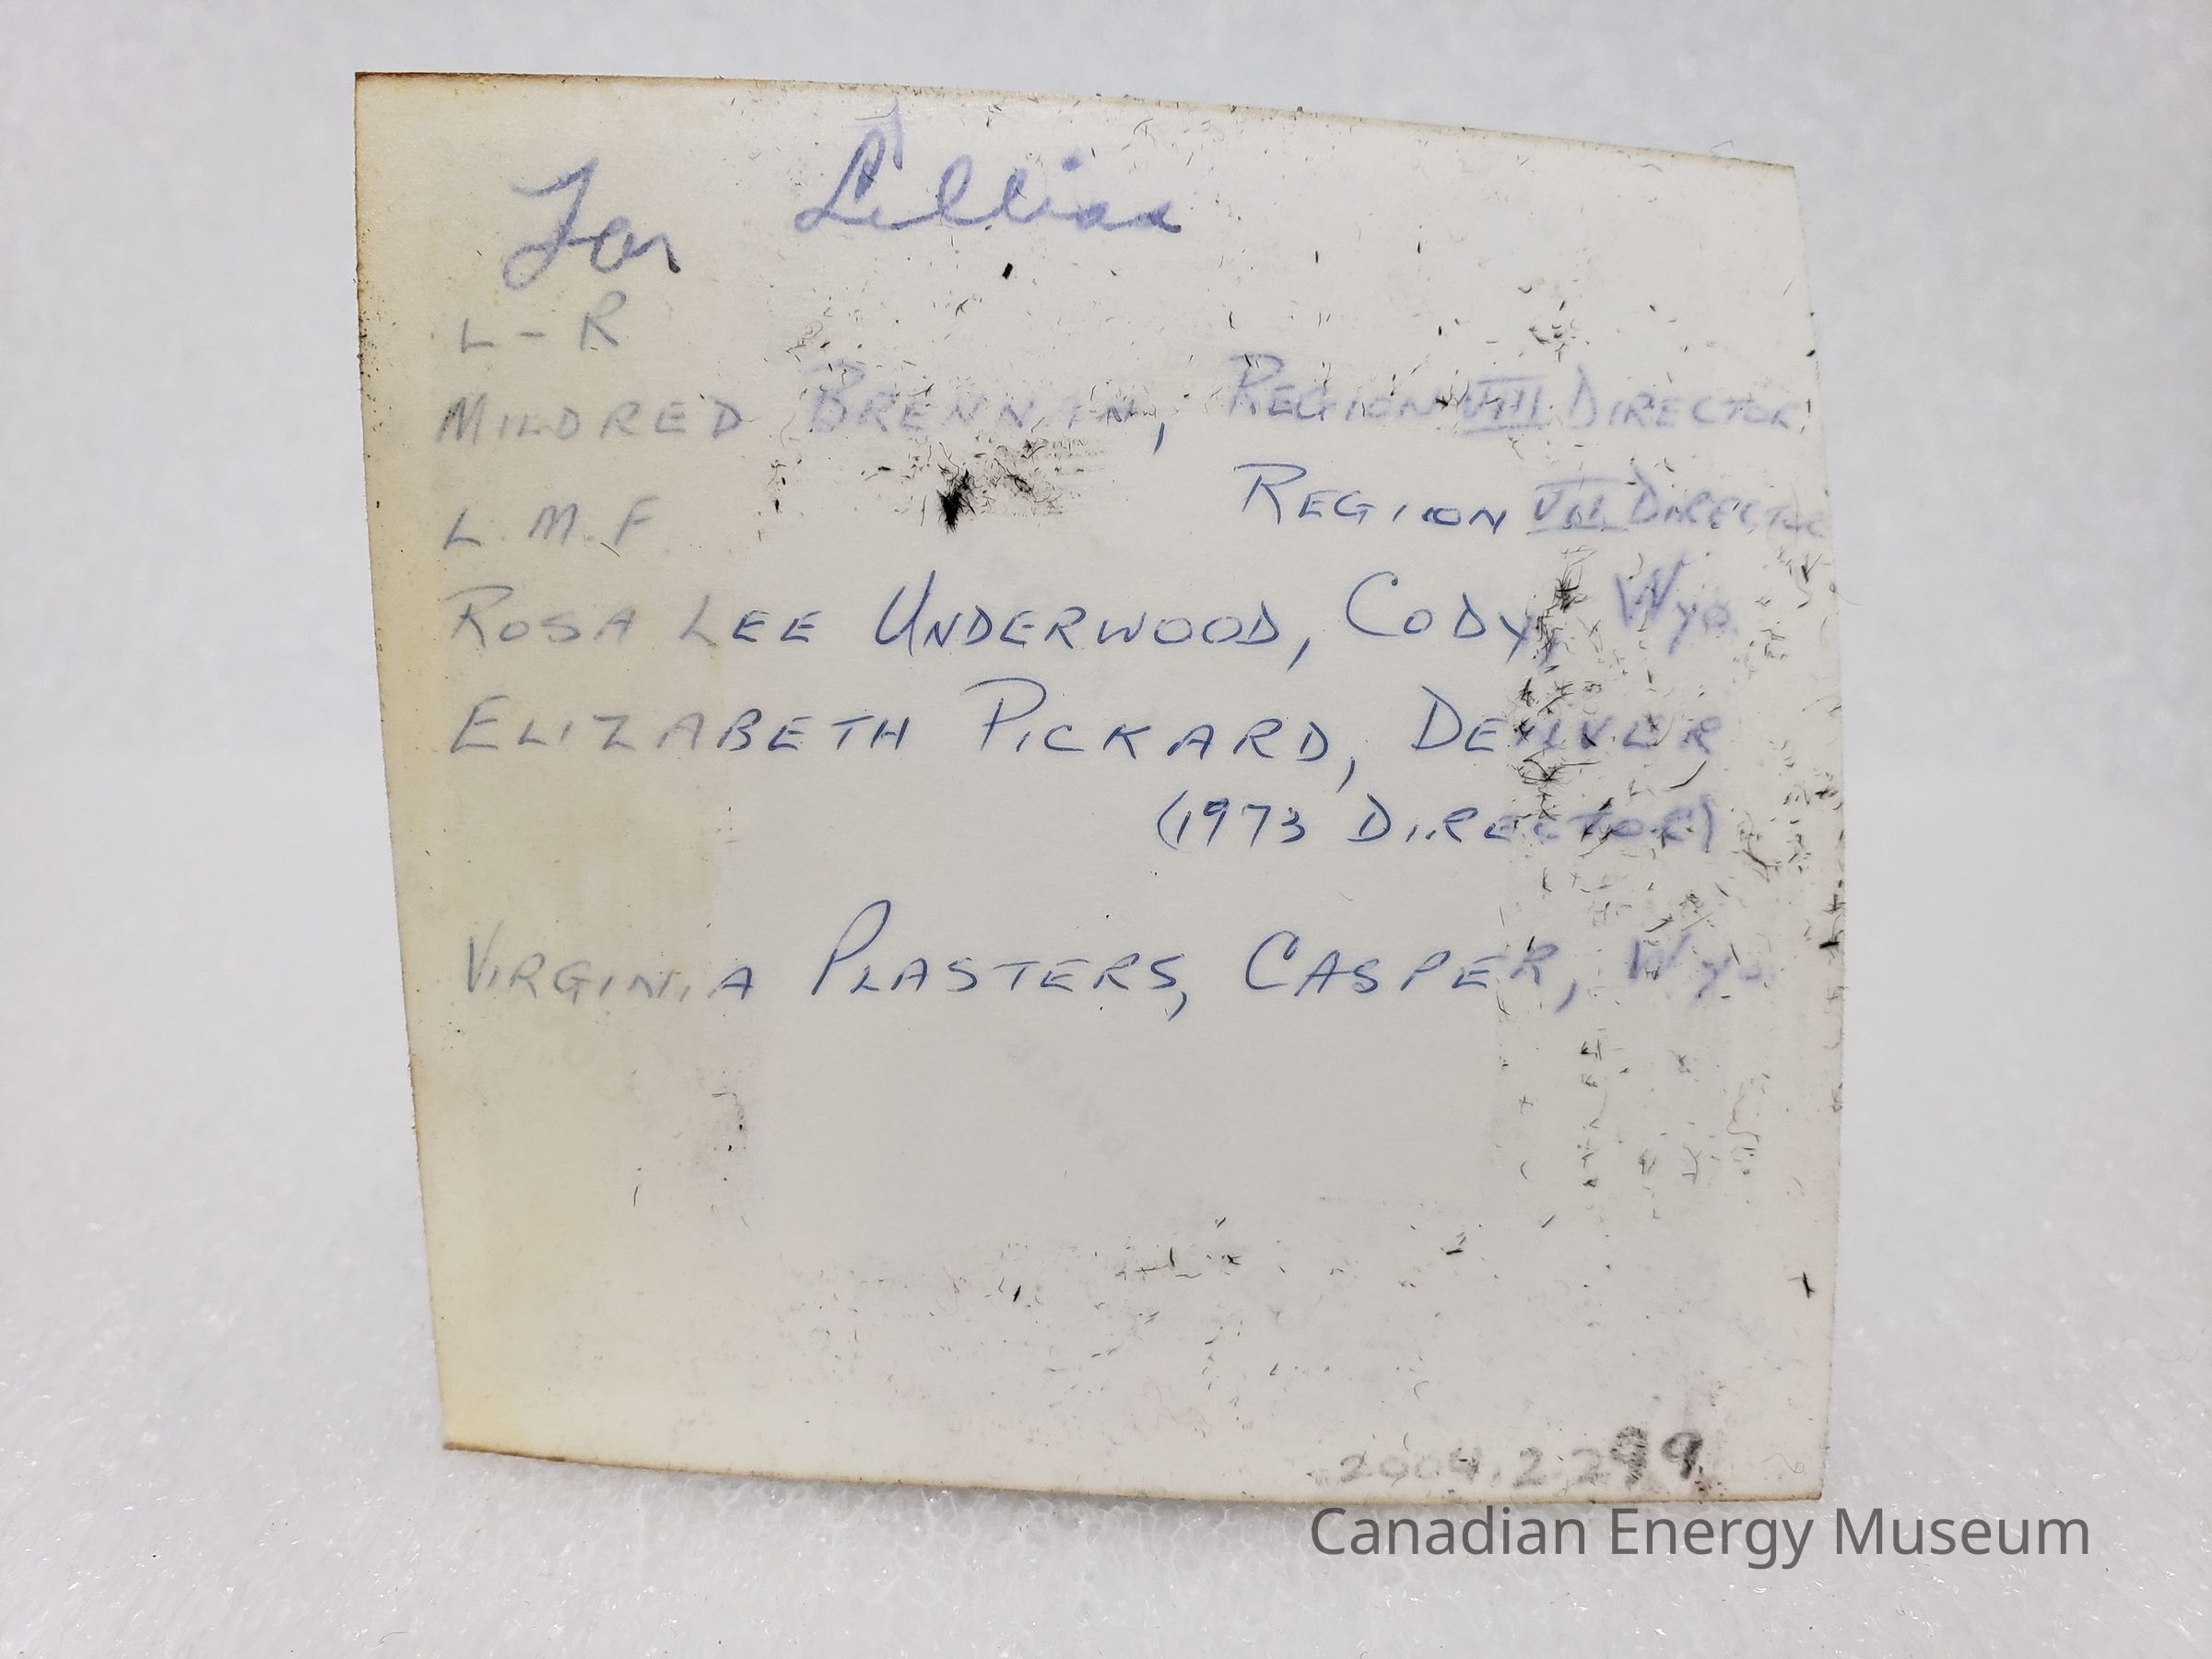 For Lillian
L - R
MILDRED BRENNAN, REGION VIII DIRECTOR
L. M. F. REGION VII DIRECTOR
ROSA LEE UNDERWOOD, CODY, Wyo.
ELIZABETH PICKARD, DENVER
(1973 DIRECTOR)
VIRGINIA PLASTERS, CASPER, Wyo.
2004.2.299
Canadian Energy Museum